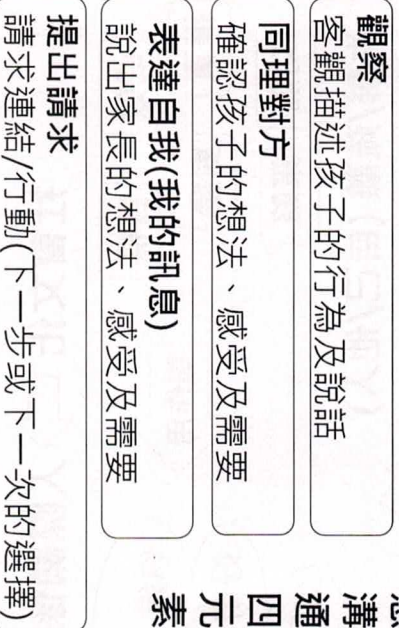 觀察
客觀描述孩子的行為及說話
同理對方
確認孩子的想法、感受及需要
表達自我(我的訊息)
說出家長的想法、感受及需要
提出請求
請求連結/行動(下一步或下一次的選擇)
溝通四元素